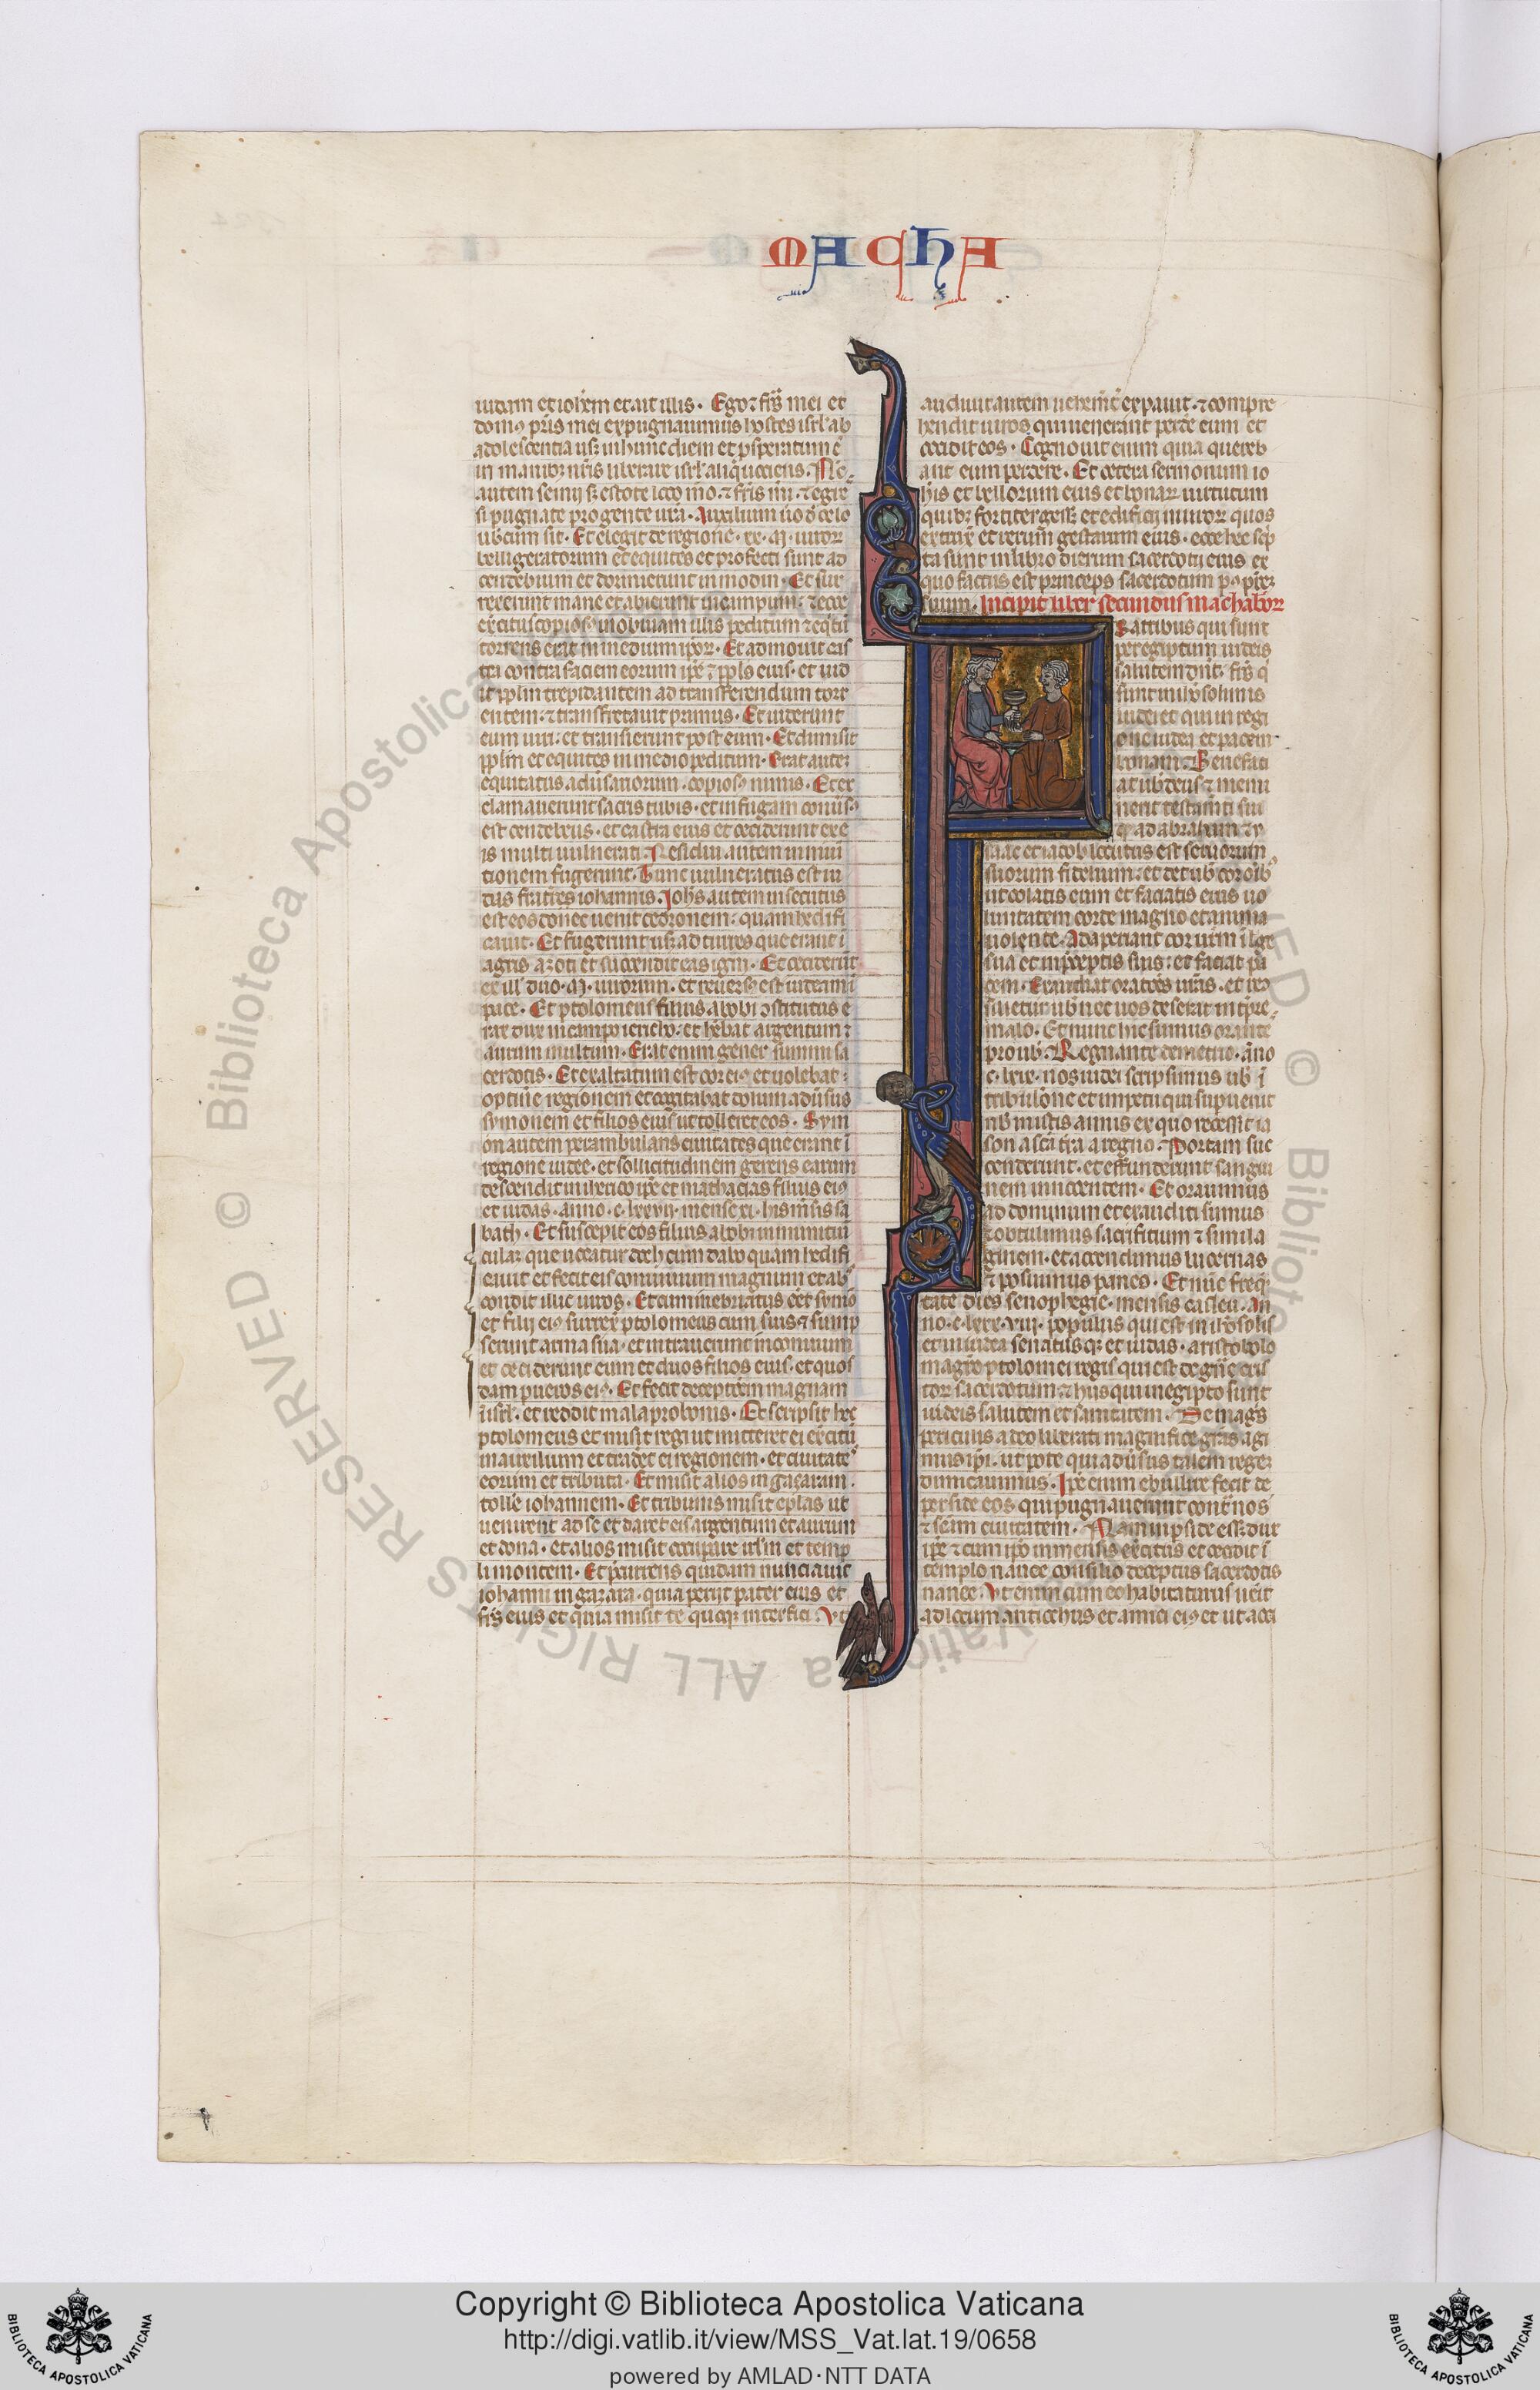 MACHA
iudam et ioh̄em et ait illis · Ego ⁊ fr̄s mei et
domꝰ pr̄is mei expugnauimus hostes isrl̄ ab
adolescentia usqꝫ in hunc diem et ꝓsperatum ē
in manibꝫ nr̄is liberare isrl̄ aliquociens · Nc̄
autem senui sꝫ estote loco meo · ⁊ fr̄is mī · ⁊ egre
si pugnate pro gente ur̄a · Auxilium ū̓o de celo
uobiscum sit · Et elegit de regione · xx · M · uirorꝝ
belligeratorum et equites et profecti sunt ad
cendebium et dormierunt in modin · Et sur
rexerunt mane et abierunt in campum : ⁊ ecce
exercitus copiosꝰ in obuiam illis peditum ⁊ eqͥtū
torrens erat in medium ipsorꝝ · Et admouit cas
tra contra faciem eorum ipse ⁊ ppl̄s eius · et uid
it ppl̄m trepidantem ad transferendum torr
entem : ⁊ transfretauit primus · Et uiderunt
eum uiri : et transierunt post eum · Et diuisit
ppl̄m et equites in medio peditum · Erat autem
equitatus aduersariorum · copiosꝰ nimis · Et ex
clamauerunt sacris tubis · et in fugam conuersꝰ
est cendebeus · et castra eius et ceciderunt ex e
is multi uulnerati · Residui autem in muni
tionem fugerunt · Tunc uulneratus est iu
das frater iohannis · Ioh̄s autem insecutus
est eos donec uenit cedronem : quam hedifi
cauit · Et fugerunt usqꝫ ad turres que erant ī
agris azoti et succendit eas igni · Et ceciderūt
ex ill̓ duo · M · uirorum · et reuersꝰ est in iudeam ī
pace · Et ptolomeus filius abobi ꝯstitutus e
rat dux in campo iericho : et hēbat argentum ⁊
aurum multum · Erat enim gener summi sa
cerdotis · Et exaltatum est cor eiꝰ et uolebat
optine regionem et cogitabat dolum aduersus
symonem et filios eius ut tolleret eos · Sym
on autem perambulans ciuitates que erant ī
regione iudee · et sollicitudinem gerens earum
descendit in iherico ipse et mathatias filius eiꝰ
et iudas · anno · c · lxxvii · mense xi · hic mensis sa
bath · Et suscepit eos filius abobi in munitiū
culam que uocatur doch cum dolo quam hedifi
cauit et fecit eis conuiuium magnum et abs
condit illic uiros · Et cum inebriatus eēt symō
et filii eiꝰ surrexit ptolomeus cum suis ⁊ sump
serunt arma sua · et intrauerunt in conuiuium
et occiderunt eum et duos filios eius · et quos
dam pueros eiꝰ · Et fecit deceptionem magnam
ī isrl̄ · et reddit mala pro bonis · Et scripsit hec
ptolomeus et misit regi ut mitteret ei exercitū
in auxilium et traderet ei regionem · et ciuitates
eorum et tributa · Et misit alios in gazaram ·
tolle iohannem · Et tribunis misit epl̄as ut
uenirent ad se et daret eis argentum et aurum
et dona · Et alios misit occupare irl̄m et temp
li montem · Et p̄currens quidam nunciauit
iohanni in gazara · quia periit pater eius et
fr̄s eius et quia misit te quoqꝫ interfici · Vt
audiuit autem uehement̄ expauit · ⁊ compre
hendit uiros qui uenerant perdere eum et
occidit eos · Cognouit enim quia quereb
ant eum perdere · Et cetera sermonum io
h̄is et bellorum eius et bonarꝝ uirtutum
quibꝫ fortiter gessit et edificii murorꝝ quos
extruxit et rerum gestarum eius · ecce hec scrip
ta sunt in libro dierum sacerdotii eius ex
quo factus est princeps sacerdotum pꝰ pr̄em
suum · Incipit liber secundus machabeorꝝ
Fratribus qui sunt
per egiptum iudeis
salutem dnt̄ · fr̄s qͥ
sunt in iherosolimis
iudei et qui in regi
one iudee et pacem
bonam · Benefaci
at uobis deus ⁊ memi
nerit testamenti sui
qͥ ad abraham ⁊ y
saac et iacob locutus est seruorum
suorum fidelium : et det uobis cor omnibꝫ
ut colatis eum et faciatis eius uo
luntatem corde magno et animo
uolente · Adaperiat cor ur̄m ī lege
sua et in preceptis suis : et faciat pa
cem · Exaudiat orationes ur̄as · et reco
silietur uobis nec uos deserat in tempore
malo · Et nunc hic sumus orante
pro uobis · Regnante demetrio · anno
c · lxix · nos iudei scripsimus uobis ī
tribulatione et impetu qui superuenit
nobis in istis annis ex quo recessit ia
son a sancta terra a regno · Portam suc
cenderunt · et effunderunt sangui
nem innocentem · Et orauimus
ad dominum et exauditi sumus
⁊ obtulimus sacrificium ⁊ simila
ginem · et accendimus lucernas
⁊ posuimus panes · Et nunc freqͣn
tate dies senophegie · mensis casleu · An
no · c · lxxx · viii · populus qui est in iherosolimis
et in iudea senatus qꝫ et iudas · aristobolo
magistro ptolomei regis qui est de genere cris
torum sacerdotum ⁊ hiis qui in egipto sunt
iudeis salutem et sanitatem · De magnis
periculis a deo liberati magnifice gratias agi
mus ipsi · ut pote qui aduersus talem regem
dimicauimus · Ipse enim ebullire fecit de
perside eos qui pugnauerunt contra nos
⁊ sanctam ciuitatem · Nam in perside esset dux
ipse ⁊ cum ipso immensus exercitus et cecidit ī
templo nanee consilio deceptus sacerdotis
nanee · Vt enim cum eo habitaturus uenit
ad locum antiochus et amici eiꝰ et ut acci
Copyright © Biblioteca Apostolica Vaticana
http://digi.vatlib.it/view/MSS_Vat.lat.19/0658
powered by AMLAD·NTT DATA
BIBLIOTECA APOSTOLICA VATICANA
BIBLIOTECA APOSTOLICA VATICANA